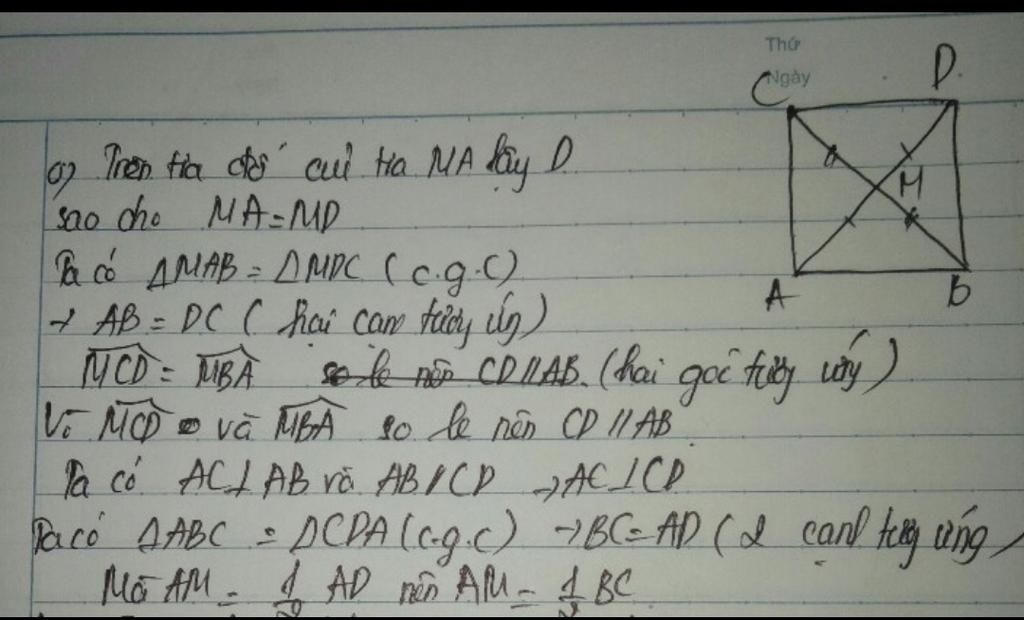 Thứ
Ngày
C
D
a) Trên tia đối cuả tia MA lấy D
sao cho MA = MD
M
Ta có ΔMAB = ΔMDC (c.g.c)
A
B
→ AB = DC (hai cạnh tương ứng)
MCD = MBA so le nên CD // AB. (hai góc tương ứng)
Vì MCD và MBA so le nên CD // AB
Ta có AC ⊥ AB và AB // CD → AC ⊥ CD
Ta có ΔABC = ΔCDA (c.g.c) → BC = AD (2 cạnh tương ứng)
Mà AM = 1/2 AD nên AM = 1/2 BC